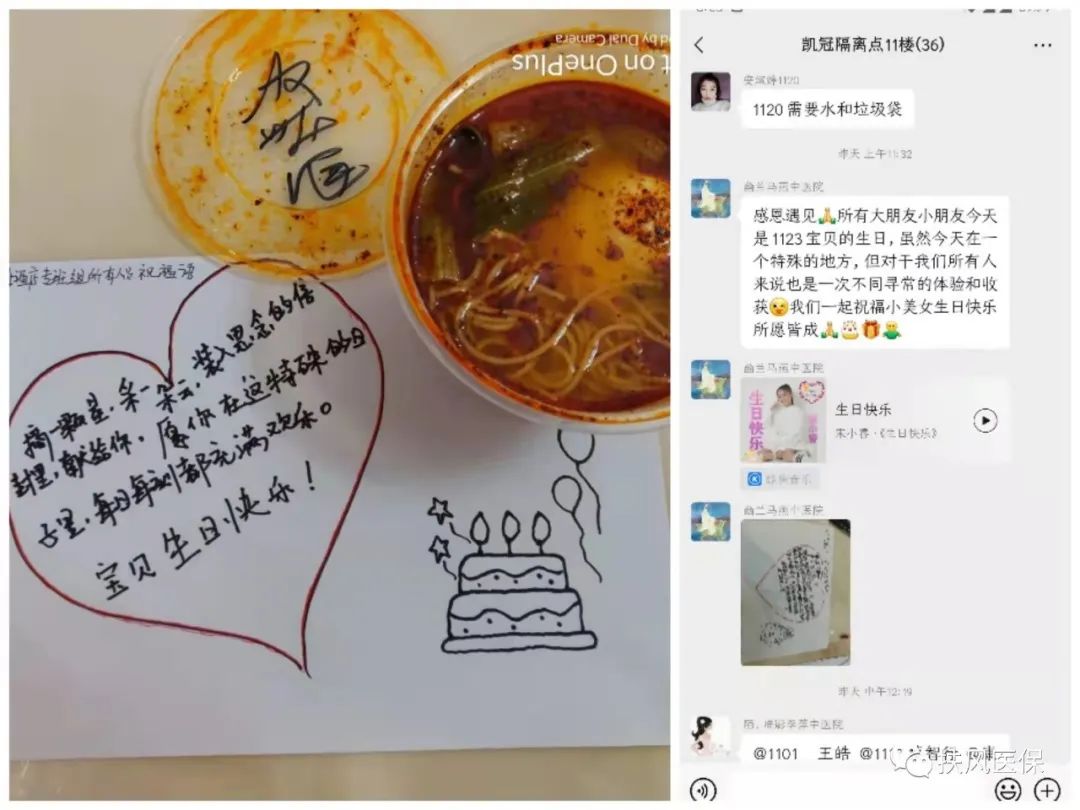 t on OnePlus
d by Dual Camera
专班组所有人员祝福语
摘一颗星,采一朵云,装入思念的信
封里,献给你,愿你在这特殊的日
子里,每日每刻都充满欢乐。
宝贝生日快乐!
凯冠隔离点11楼(36)
1120
1120需要水和垃圾袋
昨天 上午11:32
中医院
感恩遇见🙏所有大朋友小朋友今天
是1123宝贝的生日,虽然今天在一
个特殊的地方,但对于我们所有人
来说也是一次不同寻常的体验和收
获😘我们一起祝福小美女生日快乐
所愿皆成🙏🎂🎁
中医院
生日快乐
生日快乐
宋小睿·《生日快乐》
酷狗音乐
中医院
昨天 中午12:19
中医院
@1101 王皓 @11
扶风医保